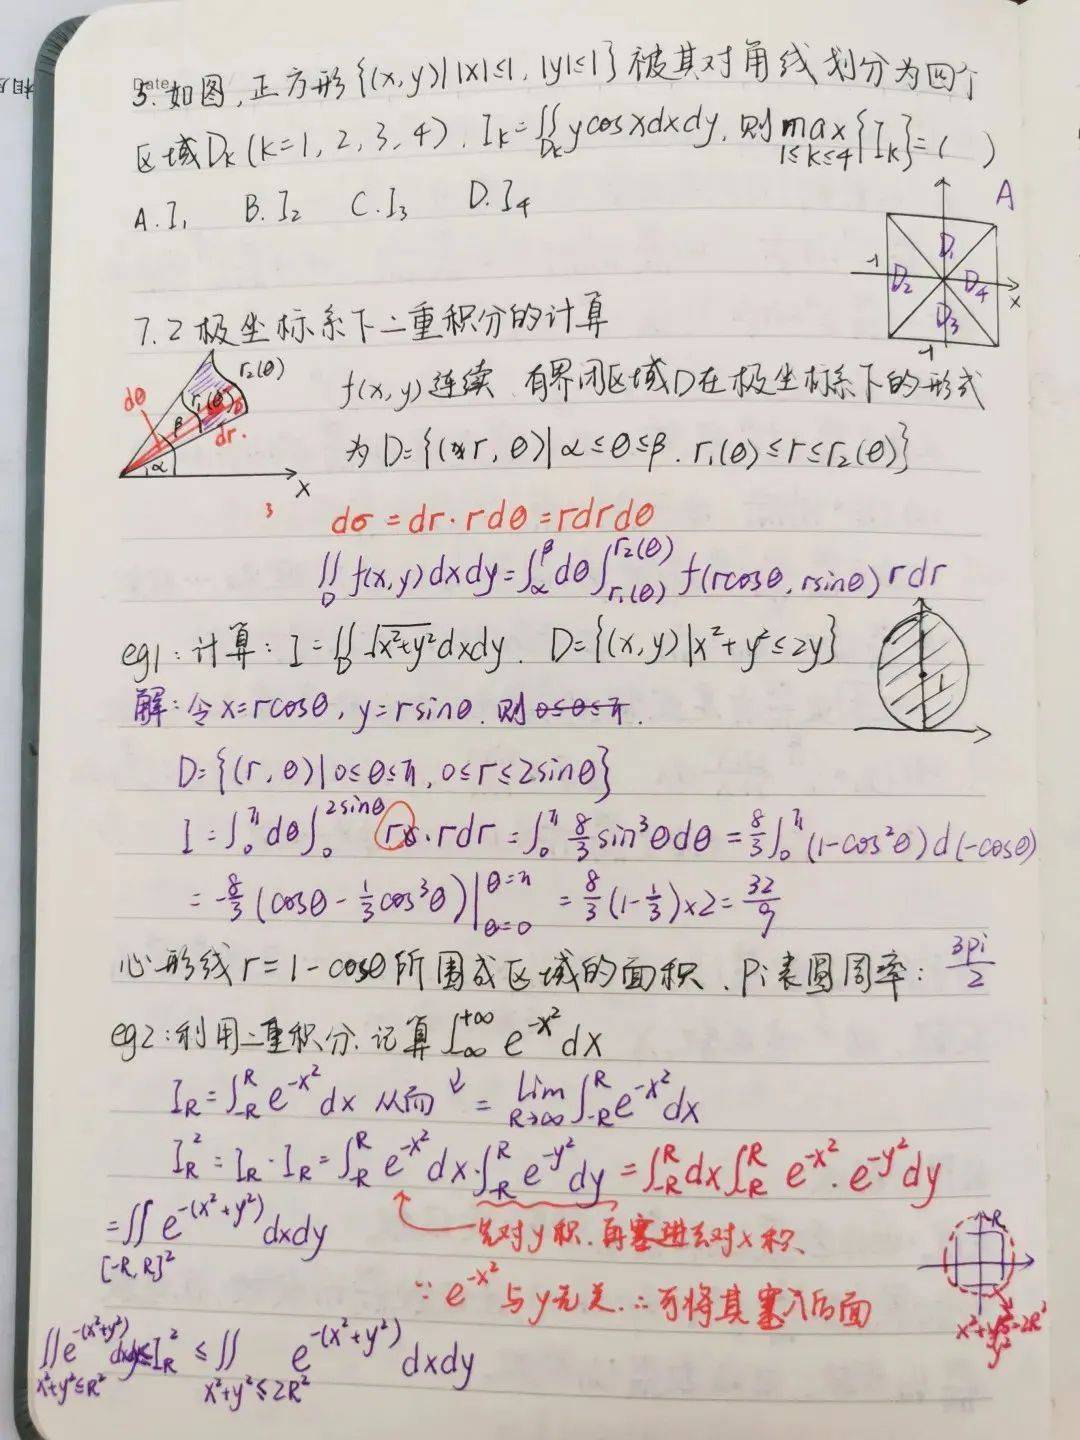 Date
5.如图,正方形{(x,y)||x|≤1,|y|≤1}被其对角线划分为四个
区域Dk(k=1,2,3,4),Ik=∬_{Dk} ycosxdxdy,则max_{1≤k≤4}{Ik}=( )
A.I₁ B.I₂ C.I₃ D.I₄
A
-1 D₁ D₂ D₄ D₃ x -1
7.2 极坐标系下二重积分的计算
dθ r₂(θ) r₁(θ) β dr. α x
f(x,y)连续,有界闭区域D在极坐标系下的形式
为D={(r,θ)|α≤θ≤β,r₁(θ)≤r≤r₂(θ)}
3
dσ=dr·rdθ=rdrdθ
∬_D f(x,y)dxdy=∫_α^β dθ∫_{r₁(θ)}^{r₂(θ)} f(rcosθ,rsinθ)rdr
eg1:计算:I=∬_D √(x²+y²)dxdy. D={(x,y)|x²+y²≤2y}
1
解:令x=rcosθ,y=rsinθ.则0≤θ≤π.
D={(r,θ)|0≤θ≤π,0≤r≤2sinθ}
I=∫₀^π dθ∫₀^{2sinθ} r·rdr=∫₀^π 8/3 sin³θdθ=8/3∫₀^π(1-cos²θ)d(-cosθ)
=-8/3(cosθ-1/3cos³θ)|_{θ=0}^{θ=π}=8/3(1-1/3)×2=32/9
心形线r=1-cosθ所围成区域的面积,pi表圆周率:3pi/2
eg2:利用二重积分,记算∫_{-∞}^{+∞} e^{-x²}dx
I_R=∫_{-R}^R e^{-x²}dx 从而↓=lim_{R→∞}∫_{-R}^R e^{-x²}dx
I_R²=I_R·I_R=∫_{-R}^R e^{-x²}dx·∫_{-R}^R e^{-y²}dy=∫_{-R}^R dx∫_{-R}^R e^{-x²}·e^{-y²}dy
=∬_{[-R,R]²} e^{-(x²+y²)}dxdy
先对y积,再塞进去对x积、
∵e^{-x²}与y无关,∴可将其塞入后面
R
x²+y²=2R²
∬_{x²+y²≤R²} e^{-(x²+y²)}dxdy≤I_R²≤∬_{x²+y²≤2R²} e^{-(x²+y²)}dxdy